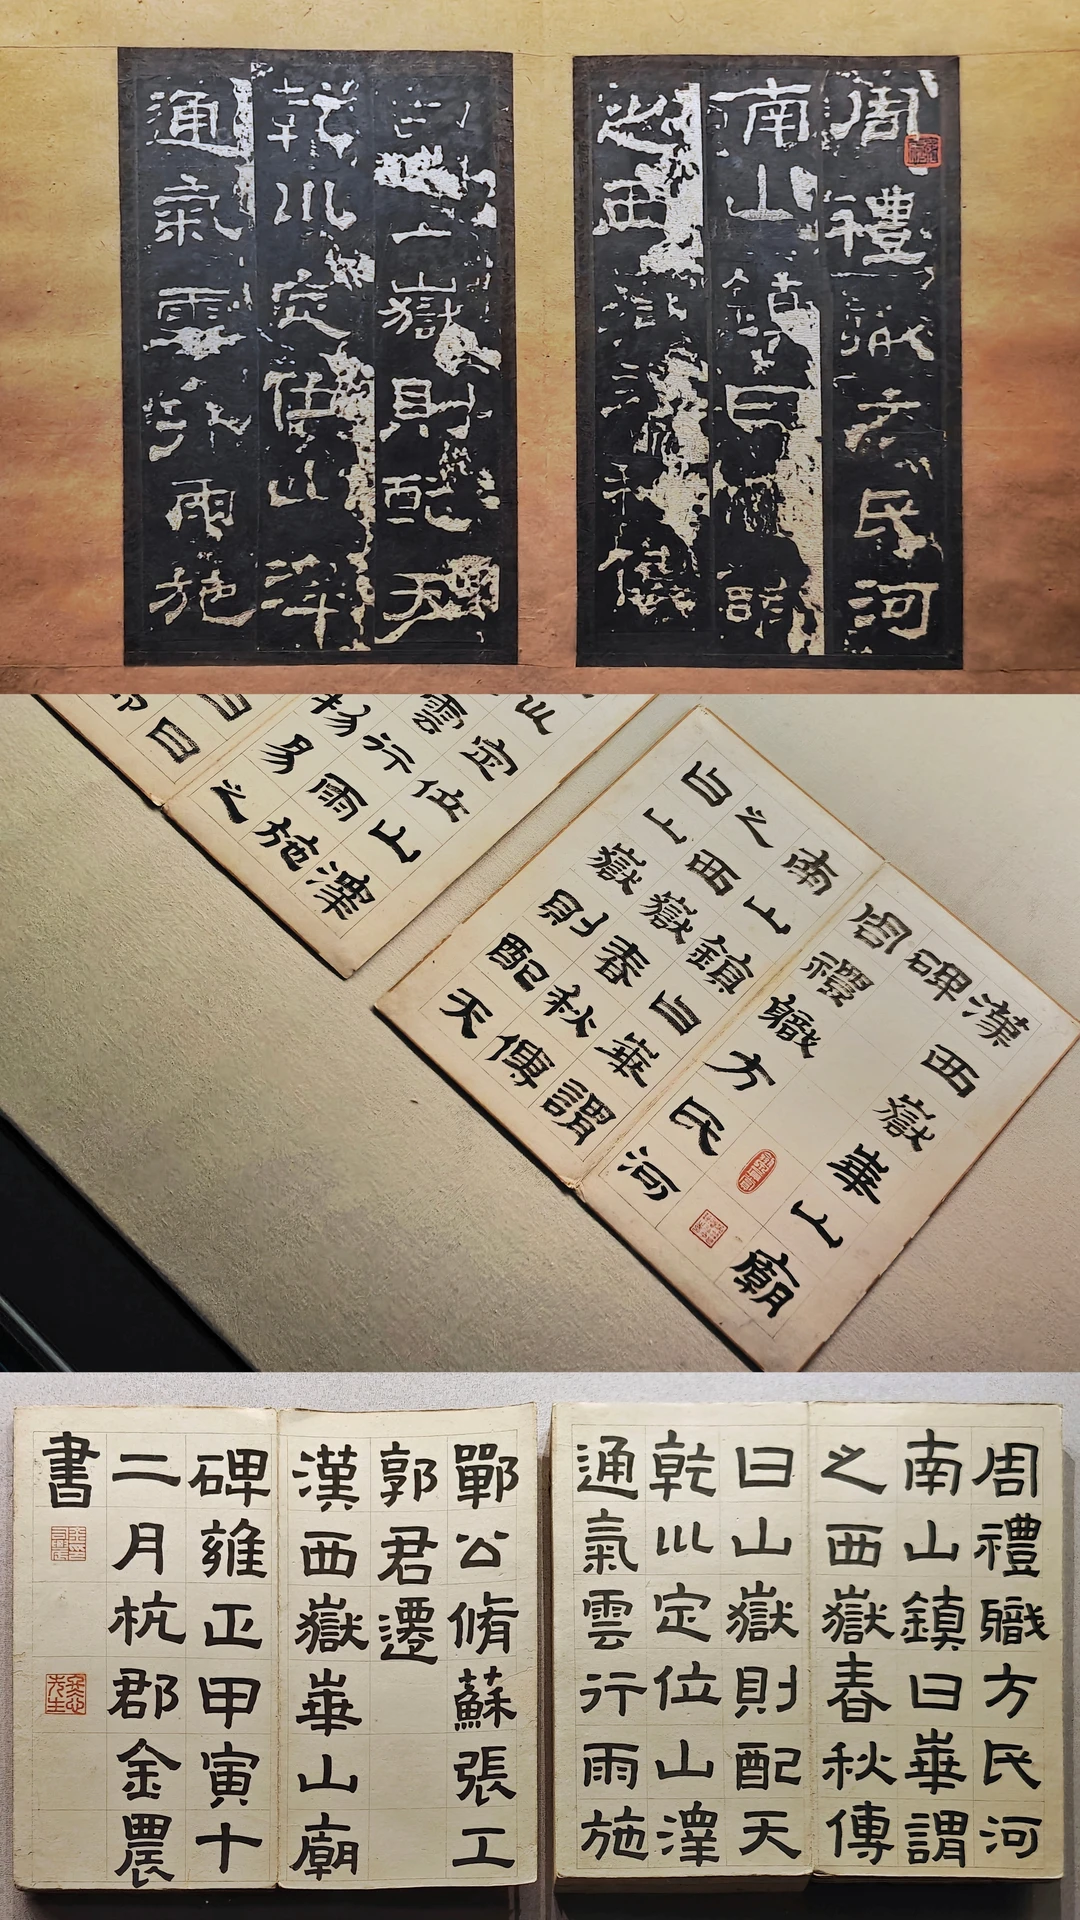 周禮職方氏河
南山鎮曰華謂
之西嶽春秋傳
曰山嶽則配天
乾川定位山澤
通氣雲行雨施
漢西嶽華山廟
碑
周禮職方氏河
南山鎮曰華謂
之西嶽春秋傳
曰山嶽則配天
定位山澤
雲行雨施
物易之
曰
周禮職方氏河
南山鎮曰華謂
之西嶽春秋傳
曰山嶽則配天
乾川定位山澤
通氣雲行雨施
鄲公脩蘇張工
郭君遷
漢西嶽華山廟
碑雍正甲寅十
二月杭郡金農
書
冬心先生